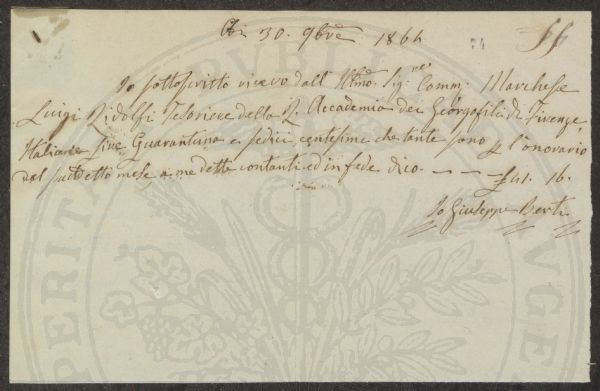 30. 9bre 1864
Io sottoscritto ricevo dall' Illmo. Sig.re Comm. Marchese
Luigi Ridolfi Tesoriere della R. Accademia dei Georgofili di Firenze,
Italiane Lire Quarantuna e sedici centesimi che tante sono p l'onorario
del suddetto mese a me dette contanti ed in fede dico. — — £ 41. 16.
Io Giuseppe Berti